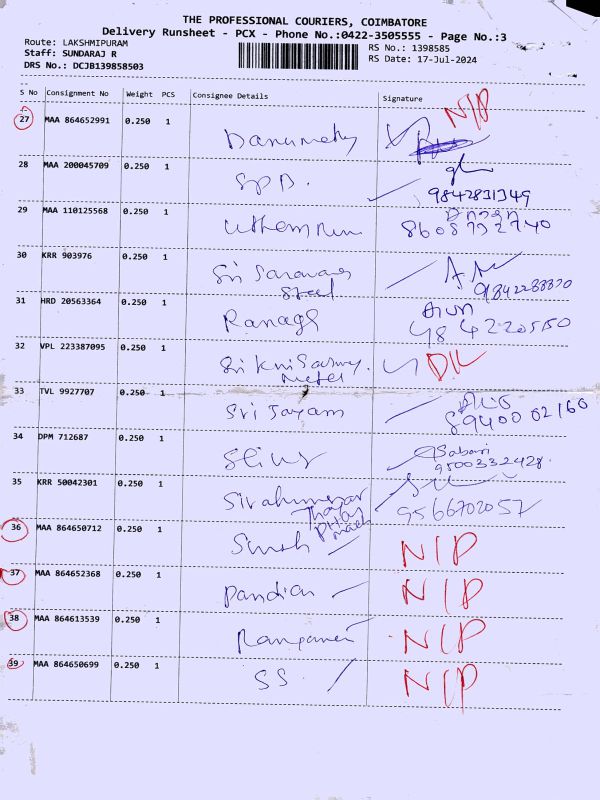 THE PROFESSIONAL COURIERS, COIMBATORE
Delivery Runsheet - PCX - Phone No.:0422-3505555 - Page No.:3
Route: LAKSHMIPURAM
RS No.: 1398585
Staff: SUNDARAJ R
RS Date: 17-Jul-2024
DRS No.: DCJB139858503
S No Consignment No Weight PCS Consignee Details Signature
27 MAA 864652991 0.250 1 N/P
28 MAA 200045709 0.250 1 SPB.
9842831349
29 MAA 110125568 0.250 1
8608732740
30 KRR 903976 0.250 1 Sri Saravana
Steel
31 HRD 20563364 0.250 1 Arun
32 VPL 223387095 0.250 1 DK
33 TVL 9927707 0.250 1 Sri Jayam
89400 02160
34 DPM 712687 0.250 1 Sabari
9500332428
35 KRR 50042301 0.250 1 9566702057
36 MAA 864650712 0.250 1 N/P
37 MAA 864652368 0.250 1 Pandian N/P
38 MAA 864613539 0.250 1 N/P
39 MAA 864650699 0.250 1 SS. N/P